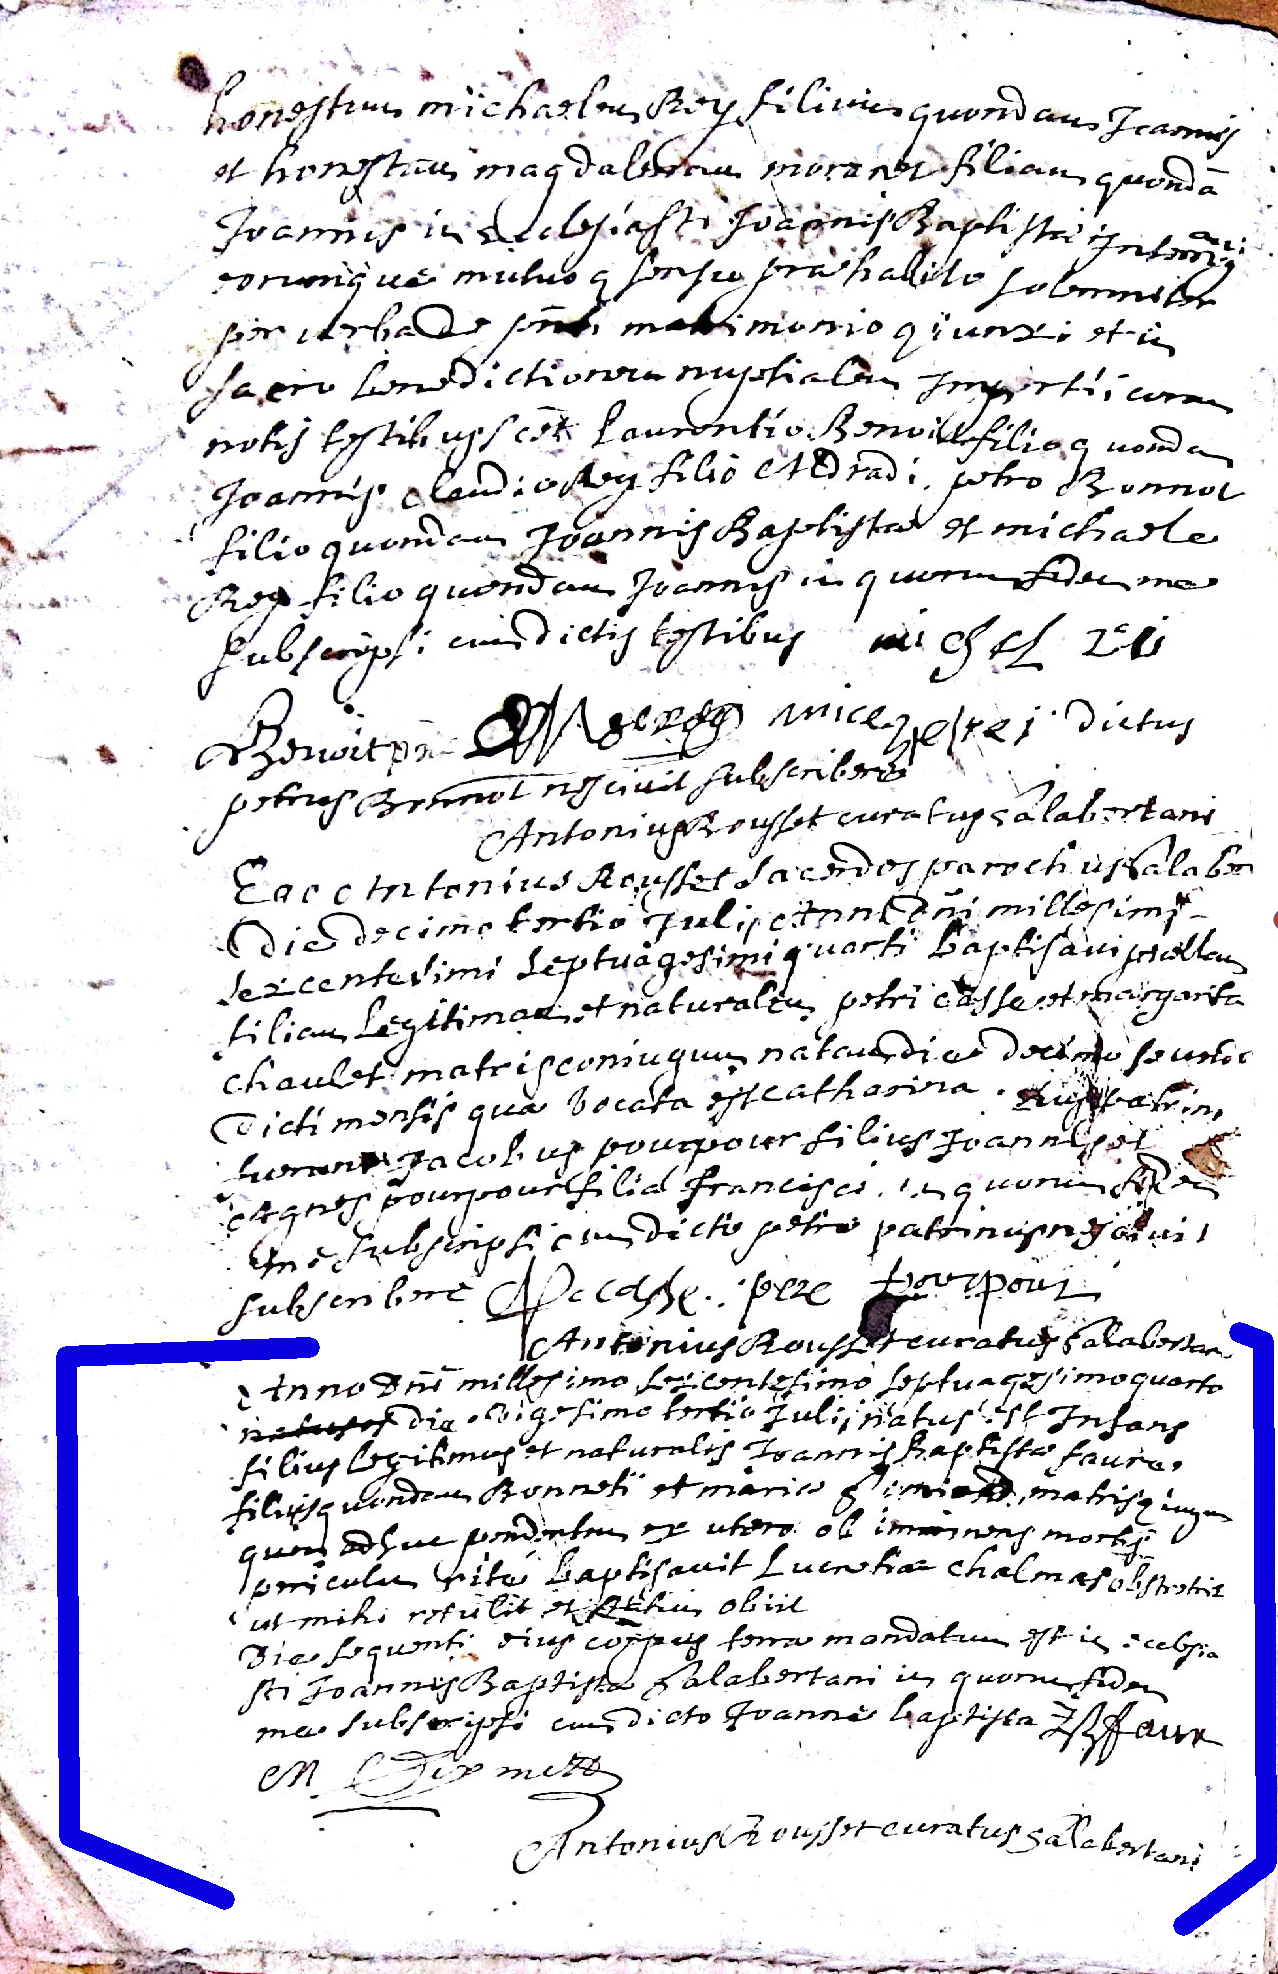 honestum michaelem Rey filium quondam Joannis
et honestam magdalenam moranet filiam quondã
Joannis in Ecclesia sti Joannis Baptistæ Interrog
eorumque mutuo sensu præhabito solemniter
per verba de pñti matrimonio et in
sacro benedictionem nuptialem Impertii coram
notis testibus scet Laurentio Benoit filio quondam
Joannis Claudio Rey filio petro Bonnot
filio quondam Joannis Baptistæ et michaele
Rey filio quondam Joannis in quorum fidem me
subscripsi cum dictis testibus
Benoit dictus
petrus Bonnot nescivit subscribere
Antonius Rousset curatus Salabertani
Ego Antonius Rousset sacerdos parochus Salaber
Die decimo tertio Julij Anni Dñi millesimi
sexcentesimi septuagesimi quarti baptisavi puellam
filiam Legitimam et naturalem petri casse et margarita
chaulet matris coniugum natam die decimo secundo
Dicti mensis quæ vocata est catharina. eius patrin
fuerunt Jacobus pourpour filius Joannis et
Agnes pourpour filia francisci. in quorum fidem
me subscripsi cum dicto petro patrinus nescivit
subscribere P casse. pere pourpour
Antonius Rousset curatus Salabertan
Anno Dñi millesimo sexcentesimo septuagesimo quarto
die vigesimo tertio Julij natus est Infans
filius legitimus et naturalis Joannis Baptistæ faure
filius quondam Bonneti et mariæ matris
quem adhuc pendentem ex utero ob imminens mortis
periculu rite baptisavit Lucretia chalmas obstetrix
ut mihi retulit et statim obiit
Die sequenti eius corpus terræ mandatum est in ecclesia
sti Joannis Baptistæ Salabertani in quorum fidem
me subscripsi cum dicto Joanne baptista JB faure
M
Antonius Rousset curatus Salabertani